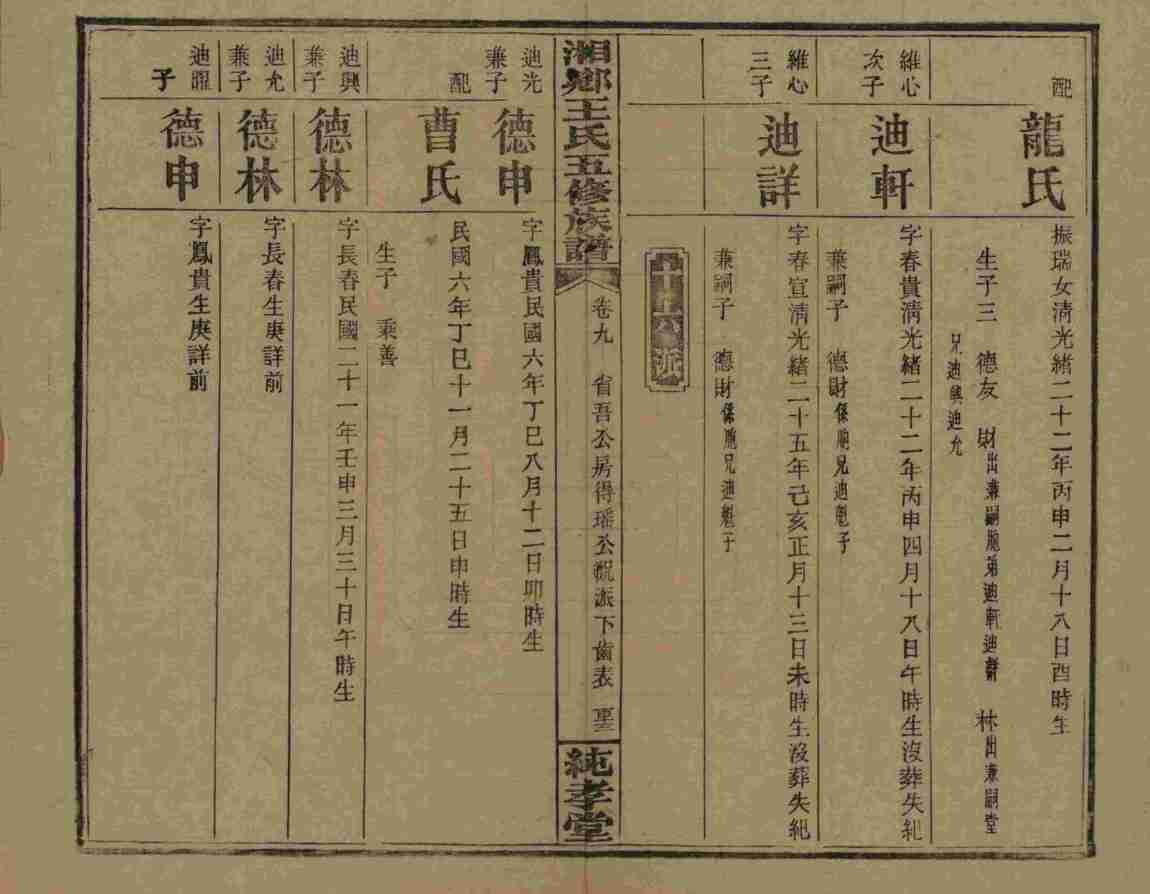 配
龍氏
振瑞女清光緒二十二年丙申二月十八日酉時生
生子三 德友 財出兼嗣胞弟迪軒迪詳 林出兼嗣堂
兄迪興迪允
維心
次子
迪軒
字春貴清光緒二十二年丙申四月十八日午時生沒葬失紀
兼嗣子 德財係胞兄迪魁子
維心
三子
迪詳
字春宣清光緒二十五年己亥正月十三日未時生沒葬失紀
兼嗣子 德財係胞兄迪魁子
派
湘鄉王氏五修族譜
卷九 省吾公房得瑤公貺派下齒表
純孝堂
迪光
兼子
德申
字鳳貴民國六年丁巳八月十二日卯時生
配
曹氏
民國六年丁巳十一月二十五日申時生
生子 秉善
迪興
兼子
德林
字長春民國二十一年壬申三月三十日午時生
迪允
兼子
德林
字長春生庚詳前
迪躍
子
德申
字鳳貴生庚詳前